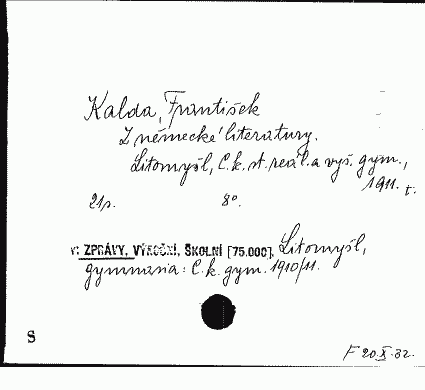 Kalda, František
Z německé literatury.
Litomyšl, C.k.st.reál.a vyš.gym.,
1911. t.
21s. 8°.
v: ZPRÁVY, VÝROČNÍ, ŠKOLNÍ [75.000], Litomyšl,
gymnasia: C.k.gym. 1910/11.
S
F 20.X.32.